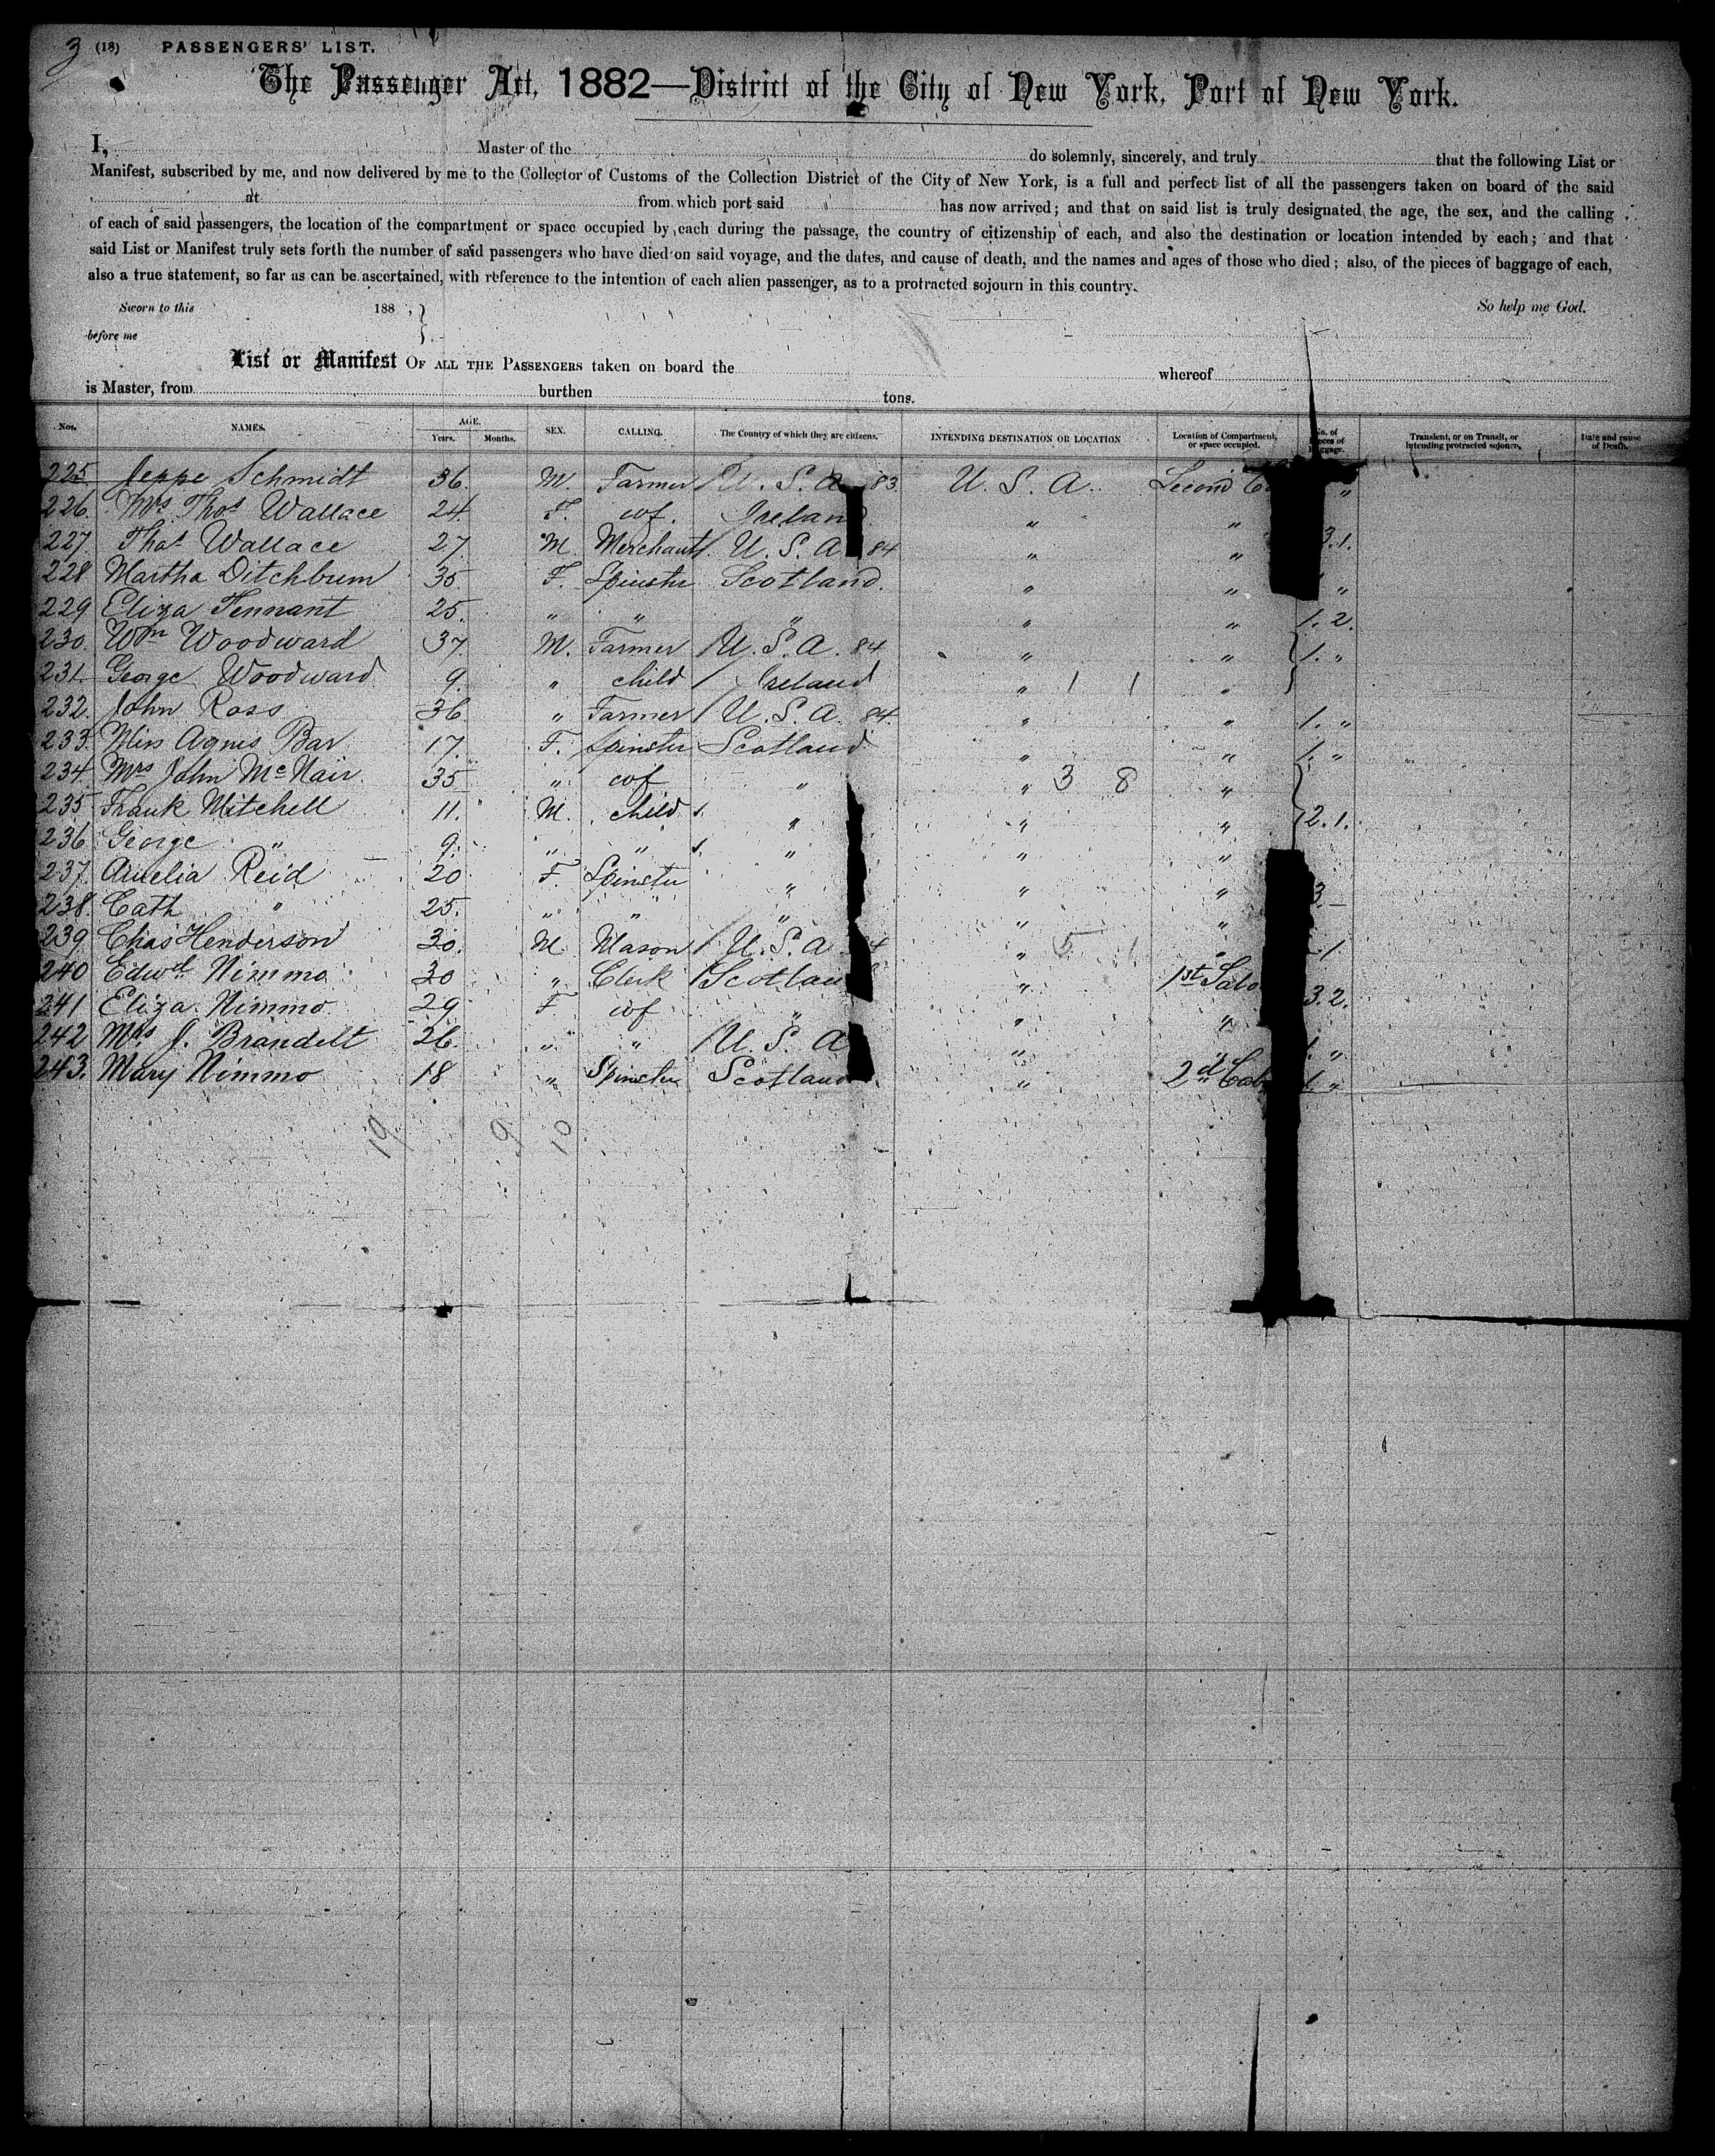 3 (18) PASSENGERS' LIST.
The Passenger Act, 1882—District of the City of New York, Port of New York.
I, Master of the do solemnly, sincerely, and truly that the following List or
Manifest, subscribed by me, and now delivered by me to the Collector of Customs of the Collection District of the City of New York, is a full and perfect list of all the passengers taken on board of the said
at from which port said has now arrived; and that on said list is truly designated the age, the sex, and the calling
of each of said passengers, the location of the compartment or space occupied by each during the passage, the country of citizenship of each, and also the destination or location intended by each; and that
said List or Manifest truly sets forth the number of said passengers who have died on said voyage, and the dates, and cause of death, and the names and ages of those who died; also, of the pieces of baggage of each,
also a true statement, so far as can be ascertained, with reference to the intention of each alien passenger, as to a protracted sojourn in this country.
Sworn to this 188 , } So help me God.
before me }
List or Manifest OF ALL THE PASSENGERS taken on board the whereof
is Master, from burthen tons.
Nos. NAMES. AGE. Years. Months. SEX. CALLING. The Country of which they are citizens. INTENDING DESTINATION OR LOCATION Location of Compartment, or space occupied. No. of Pieces of Baggage. Transient, or on Transit, or intending protracted sojourn. Date and cause of Death.
225 Jeppe Schmidt 36. M. Farmer / U. S. A 83 U. S. A. Second "
226. Mrs Thos Wallace 24. F. wf. Ireland " "
227. Thos Wallace 27. M. Merchant / U. S. A 84 " " 3.1.
228 Martha Ditchburn 35. F. Spinster Scotland. " " "
229 Eliza Tennant 25. " " " " " 1. 2.
230. Wm Woodward 37. M. Farmer / U. S. A. 84 " " 1. "
231 George Woodward 9. " child / Ireland " 1 1 "
232. John Ross 36. " Farmer / U. S. A. 84 " " 1. "
233. Miss Agnes Bar 17. F. Spinster Scotland " " 1. "
234. Mrs John McNair 35 " wf " " 3 8 "
235 Frank Mitchell 11. M. child " " " 2. 1.
236 George " 9. " " " " "
237. Amelia Reid 20 F. Spinster " " " 3
238. Cath " 25. " " " " "
239 Chas Henderson 30. M. Mason / U. S. A 4 " 5 1 " 1
240 Edwd Nimmo 30 " Clerk / Scotlan " 1st Salo
241 Eliza Nimmo 29 F wf " " " 3. 2.
242 Mrs J. Brandelt 26. " " / U. S. A " " "
243. Mary Nimmo 18 " Spinster Scotland " 2d Cab 1. "
19 9 10